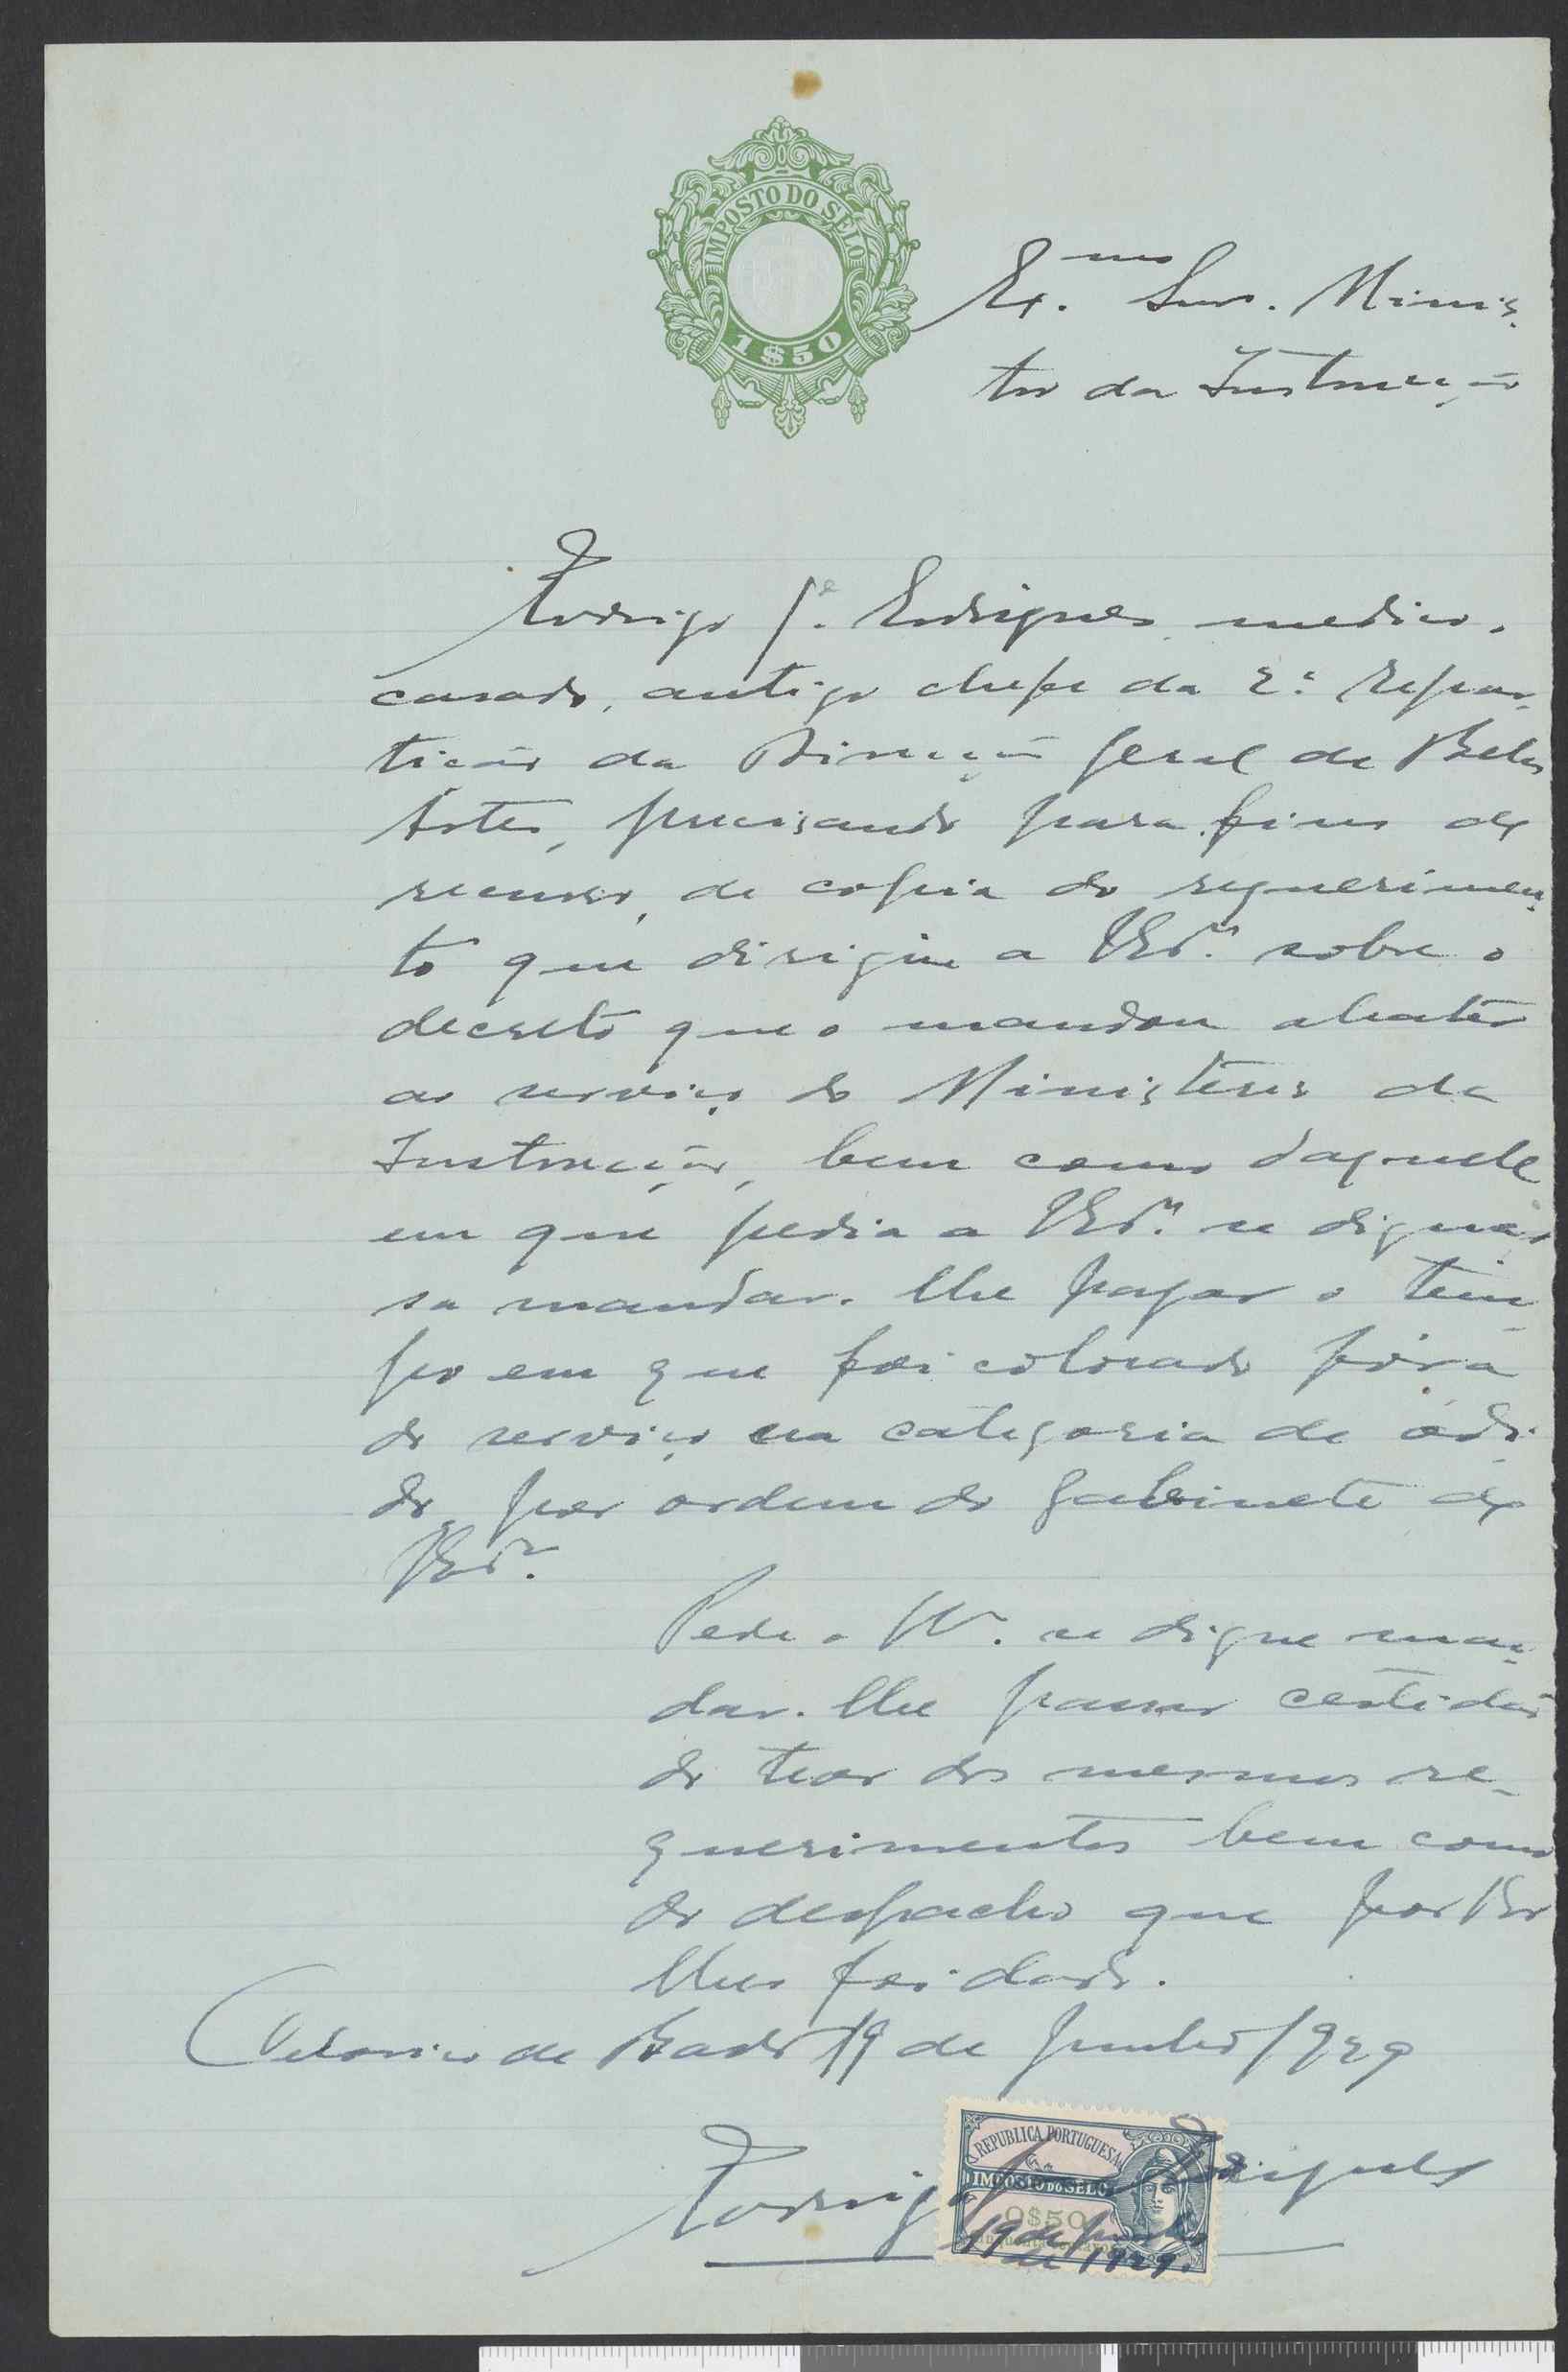 IMPOSTO DO SELO
1$50
Ex.mo Snr. Minis-
tro da Instrucção
Rodrigo J.e Rodrigues, medico,
casado, antigo chefe da 2.ª Repar-
tição da Direcção Geral de Belas
Artes, precisando para fins de
recurso, de copia do requerimen-
to que dirigiu a VEx.ª sobre o
decreto que o mandou abater
ao serviço do Ministerio da
Instrucção, bem como daquele
em que pedia a VEx.ª se dignas-
se mandar-lhe pagar o tem-
po em que foi colocado fóra
do serviço na categoria de adi-
do por ordem do Gabinete de
VEx.ª
Pede a V. se digne man-
dar-lhe passar certidão
do teor dos mesmos re-
querimentos bem como
do despacho que por
lhes foi dado.
Celorico de Basto 19 de Junho 1929
Rodrigo J Rodrigues
REPUBLICA PORTUGUESA
IMPOSTO DO SELO
0$50
19 de Junho
de 1929.